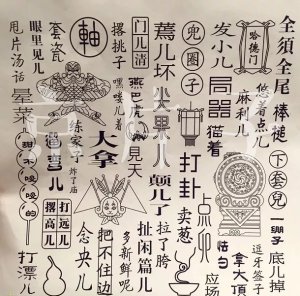 全須全尾
棒槌
下套兒
一绷子
底儿掉
哈德门
悠着点儿
麻利儿
发小儿
局器
猫着
兜圈子
打卦
点卯
卖葱
拿大頂
应场
蔫儿坏
尖果儿
颠儿了
拉了胯
扯闲篇儿
门儿清
燕巴虎
見天
多新鲜呢
撂挑子
嘿喽儿着
大拿
把不住边
軸
练家子
炸了庙
念央儿
套瓷
眼里见儿
甩片汤话
晕菜
甜不唆的
猫喜儿
打远儿
撂高儿
打漂儿